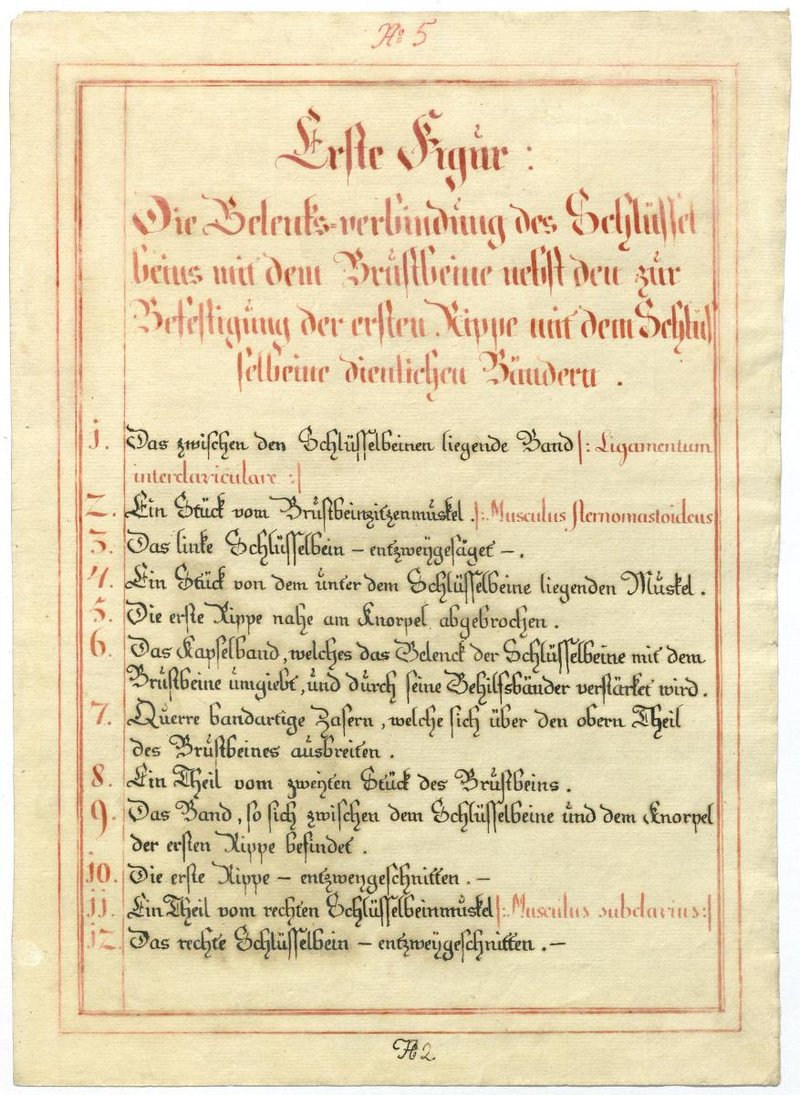 No 5
Erste Figur :
Die Gelenks=verbindung des Schlüssel
beins mit dem Brustbeine nebst den zur
Befestigung der ersten Rippe mit dem Schlüs
selbeine dienlichen Bändern .
1. Das zwischen den Schlüsselbeinen liegende Band |: Ligamentum
interclaviculare :|
2. Ein Stück vom Brustbeinzitzenmuskel . |: Musculus sternomastoideus
3. Das linke Schlüsselbein – entzweygesäget – .
4. Ein Stück von dem unter dem Schlüsselbeine liegenden Muskel .
5. Die erste Rippe nahe am Knorpel abgebrochen .
6. Das Kapselband , welches das Gelenck der Schlüsselbeine mit dem
Brustbeine umgiebt , und durch seine Behilfsbänder verstärket wird .
7. Querre bandartige Zasern , welche sich über den obern Theil
des Brustbeines ausbreiten .
8. Ein Theil vom zweyten Stück des Brustbeins .
9. Das Band , so sich zwischen dem Schlüsselbeine und dem Knorpel
der ersten Rippe befindet .
10. Die erste Rippe – entzweygeschnitten . –
11. Ein Theil vom rechten Schlüsselbeinmuskel |: Musculus subclavius :|
12. Das rechte Schlüsselbein – entzweygeschnitten . –
No 2.